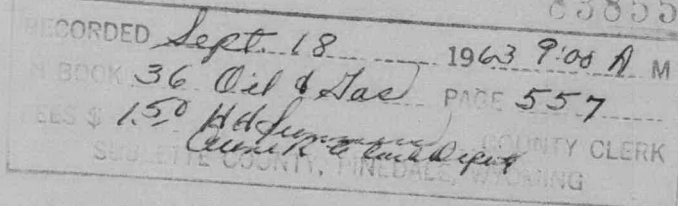 83855
RECORDED Sept. 18 1963 9:00 A M
N BOOK 36 Oil & Gas PAGE 557
FEES $ 1.50 COUNTY CLERK
SUBLETTE COUNTY, PINEDALE, WYOMING